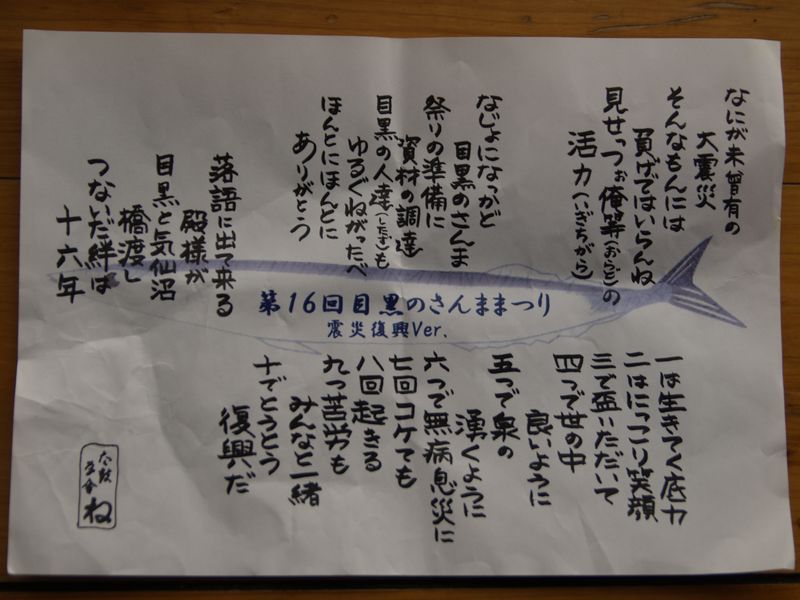 なにが未曾有の
大震災
そんなもんには
負げではいらんね
見せっつぉ俺等(おらご)の
活力(いぎぢがら)
なじょになっかど
目黒のさんま
祭りの準備に
資材の調達
目黒の人達(したず)も
ゆるぐねがったべ
ほんとにほんとに
ありがとう
落語に出て来る
殿様が
目黒と気仙沼
橋渡し
つないだ絆は
十六年
第16回目黒のさんままつり
震災復興Ver.
一は生きてく底力
二はにっこり笑顔
三で盃いただいて
四つで世の中
良いように
五つで泉の
湧くように
六つで無病息災に
七回コケても
八回起きる
九つ苦労も
みんなと一緒
十でとうとう
復興だ
ね